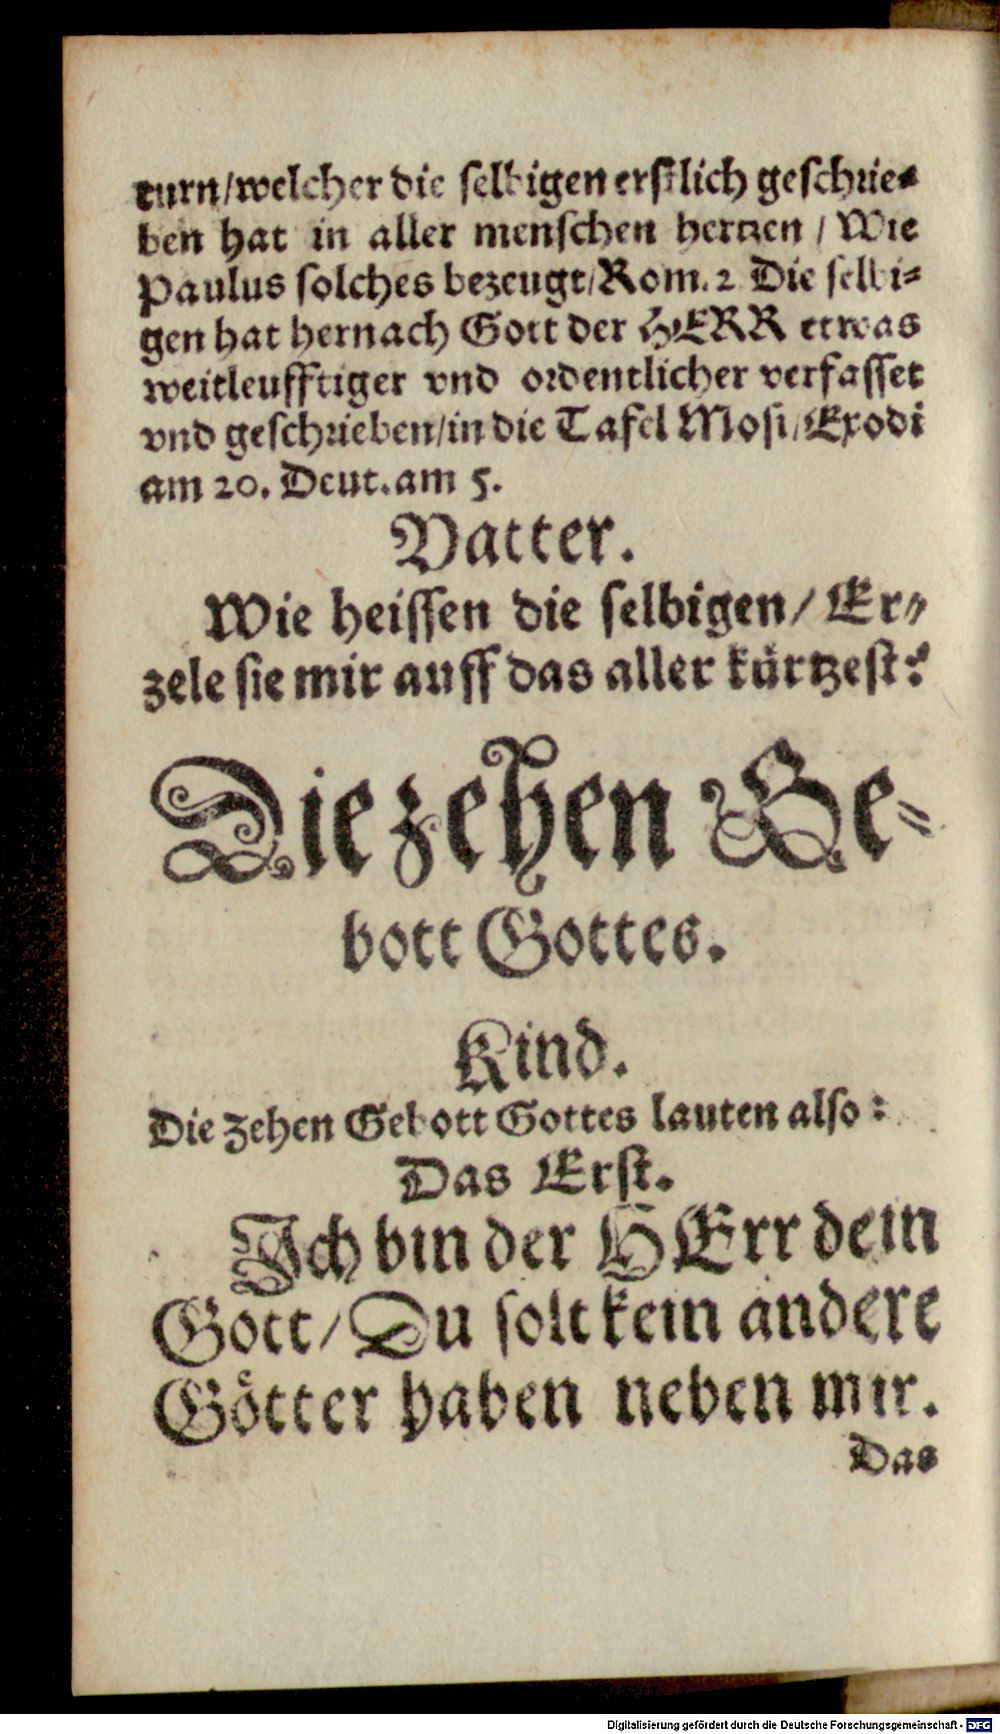 turn/welcher die selbigen erstlich geschrie-
ben hat in aller menschen hertzen / Wie
Paulus solches bezeugt/Rom. 2 Die selbi-
gen hat hernach Gott der HERR etwas
weitleufftiger vnd ordentlicher verfasset
vnd geschrieben/in die Tafel Mosi/Exodi
am 20. Deut. am 5.
Vatter.
Wie heissen die selbigen/ Er-
zele sie mir auff das aller kürtzest?
Die zehen Ge-
bott Gottes.
Kind.
Die zehen Gebott Gottes lauten also:
Das Erst.
Ich bin der HErr dein
Gott/ Du solt kein andere
Götter haben neben mir.
Das
Digitalisierung gefördert durch die Deutsche Forschungsgemeinschaft - DFG